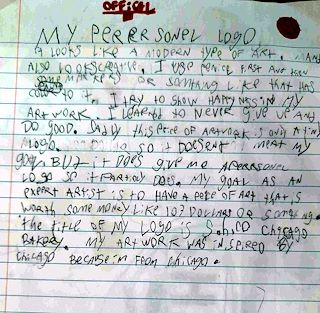 OFFICIAL
MY PERRERSONEL LOGO
it LOOKS LIKE A MODERN type OF ART. MANY
ALSO LOOKScREATIVE. I USE PENCIL FIRST AND then
some MARKERS OR SOMTHING LIKE that HAS
COLOR TO it. I tRY to SHOW HAPPYNESS IN MY
ARtWORK. I LEARNED to NEVER GIVE UP AND
DO GOOD. SADLY this PEICE OF ARtWORK is ONLY A tiny
MLOGO. so it DOESENT MEAT MY
GOAL. BUT it DOES GIVE ME APERRSONEL
LOGO SO it PARtALY DOES. MY GOAL AS AN
EXPERT ARtIST is tO HAVE A PEICE OF ARt tHAt is
WORTH SOME MONEY LIKE 10? DOLLARS OR SOMTHING.
the title OF MY LOGO is CHICAGO
BAKERY. MY ARt WORK WAS INSPIRED BY
CHICAGO BECAUSE iM FROM CHICAGO.